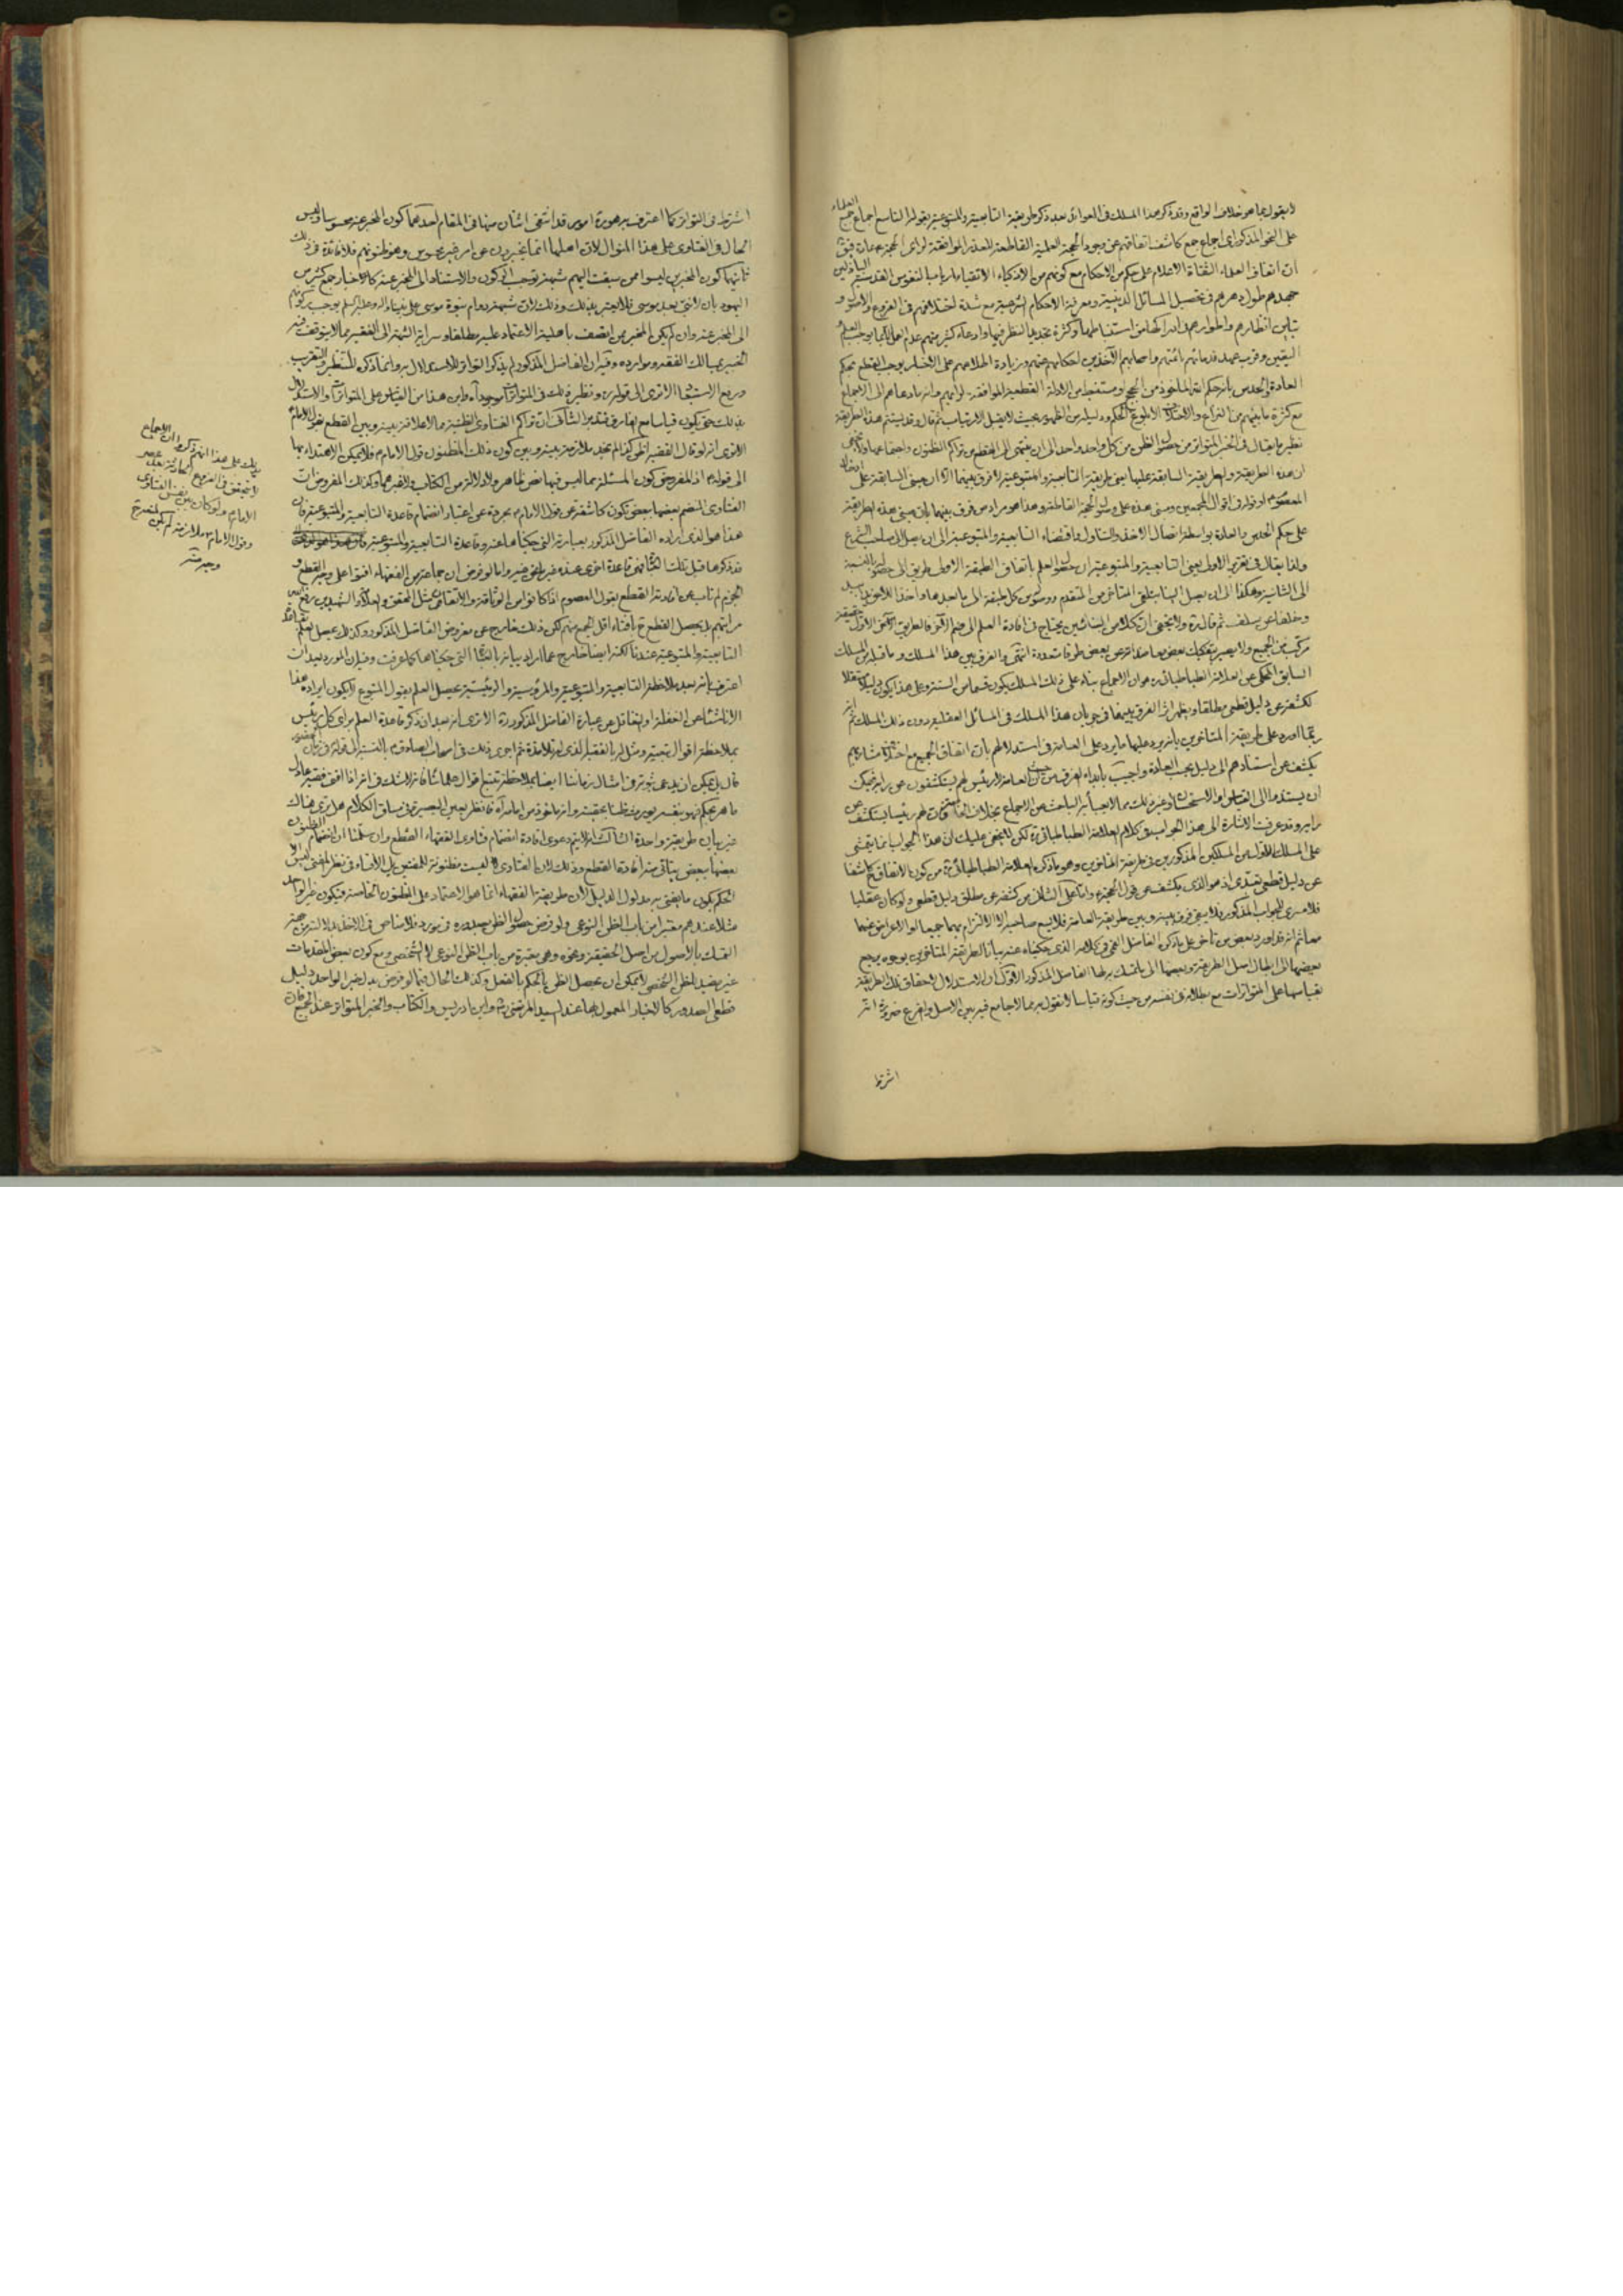 لا بقول بما هو خلاف الواقع وقد ذكر هذا المسلك في العوائد بعد ذكر طريقة التابعية والمتبوعية بقوله التاسع اجماع جمع العلماء
على النحو المذكور اى اجماع جمع كاشف اتفاقهم عن وجود الحجة العلمية القاطعة للعذر الموافقة لراى الحجة
ان اتفاق العلماء الثقاة الاعلام على حكم من الاحكام مع كونهم من الاذكياء الاتقياء ارباب النفوس القدسية الباذلين
جهدهم طول دهرهم في تحصيل المسائل الدينية ومعرفة الاحكام الشرعية مع شدة اختلافهم في الفروع والاصول و
تباين انظارهم واطوارهم استنباطها وكثرة تجديد النظر فيها وادعاء كثير منهم عدم العمل الا بما يوجب العلم و
اليقين وقرب عهد قدمائهم بائمتهم واصحابهم الآخذين احكامهم عنهم وزيادة اطلاعهم على الاخبار يوجب القطع بحكم
العادة والحدس بانه حكم الله الماخوذ من الحجج ومستفيد من الادلة القطعية الموافقة لرايهم وانه ما دعاهم الى الاجماع
مع كثرة ما بينهم من النزاع والاختلاف الا بلوغ الحكم ودليله من الظهور بحيث لا يقبل الارتياب ثم قال وقد يستتم هذه الطريقة
نظير ما يقال في الخبر المتواتر من حصول الظن من كل واحد واحد الى ان ينتهى الى القطع من تراكم الظنون واجتماعها ولا يخفى
ان هذه الطريقة والطريقة السابقة عليها يعنى طريقة التابعية والمتبوعية لا فرق بينهما الا ان مبنى السابقة على
المعصوم او دخوله في اقوال المجمعين ومبنى هذه على وصول الحجة القاطعة وهذا هو مراد من فرق بينهما بان مبنى هذه الطريقة
على حكم الحدس والعادة بواسطة اتصال الاخذ والتناول واقتضاء التابعية والمتبوعية الى ان يصل الى صاحب الشرع
ولذا يقال في تقرير الاولى يعنى التابعية والمتبوعية ان حصول العلم باتفاق الطبقة الاولى طريق الى حصوله بالنسبة
الى الثانية وهكذا الى ان يصل الينا بتلقى المتاخر من المتقدم ووصوله من كل طبقة الى ما بعدها واخذ اللاحق
وخلفا عن سلف ثم قال ره ولا يخفى ان كلا من المسلكين يحتاج في افادة العلم الى ضم الاخر فالطريق الحق الاول حقيقة
مركب من الجميع ولا يصير بتفكيك بعض مقدماته عن بعض طرقا متعددة انتهى والفرق بين هذا المسلك وما قبله من المسلك
السابق المحكى عن العلامة الطباطبائى ره هو ان الاجماع بناء على ذلك المسلك يكون قسما من السنة وعلى هذا يكون دليلا مستقلا
لكشفه عن دليل قطعى مطلقا ويظهر اثر الفرق بينهما في جريان هذا المسلك في المسائل العقلية دون ذلك المسلك ثم انه
ربما اورد على طريقة المتاخرين بانه يرد عليها ما يرد على العامة في استدلالهم بان اتفاق الجميع مع اختلاف مشاربهم
يكشف عن استنادهم الى دليل بحسب العادة واجيب بابداء الفرق من حيث ان العامة لا رئيس لهم يستكشفون عن رايه فيمكن
ان يستندوا الى القياس او الاستحسان وغير ذلك مما لا يعبأ به الباحث عن الاجماع بخلاف الخاصة فان لهم رئيسا يستكشف عن
رايه وقد عرفت الاشارة الى هذا الجواب في كلام العلامة الطباطبائى ره لكن لا يخفى عليك ان هذا الجواب انما يتمشى
على المسلك الاول من المسلكين المذكورين في طريقة المتاخرين وهو ما ذكره العلامة الطباطبائى ره من كون الاتفاق كاشفا
عن دليل قطعى تعبدى اذ هو الذى يكشف عن قول الحجة واما على الثانى من كشفه عن مطلق دليل قطعى ولو كان عقليا
فلا مسرى للجواب المذكور فلا يبقى فرق بينه وبين طريقة العامة فلا يسع صاحبه الا الالتزام بهما جميعا او الاعراض عنهما
معا ثم انه قد اورد بعض من تاخر على ما ذكره الفاضل القمى في كلامه الذى حكيناه عنه بيانا لطريقة المتاخرين بوجوه يرجع
بعضها الى ابطال اصل الطريقة وبعضها الى ما تمسك به لها الفاضل المذكور الاول ان الاستدلال لاحقاق تلك الطريقة
بقياسها على المتواترات مع بطلانه في نفسه من حيث كونه قياسا لا نقول به مما لا جامع فيه بين الاصل والفرع ضرورة انه
اشترط
اشترط في التواتر كما اعترف به هو ره امور قد انتفى اثنان منها في المقام احدهما كون المخبر عنه محسوسا وليس
الحال في الفتاوى على هذا المنوال لان اهلها انما يخبرون عن امر غير محسوس وهو ظنونهم فلا فائدة في ذلك
ثانيهما كون المخبرين ليسوا ممن سبقت اليهم شبهة توجب الركون والاستناد الى المخبر عنه كالاخبار جمع كثير من
اليهود بان لا نبى بعد موسى فلا يعتبر بذلك وذلك لان شبهة دوام نبوة موسى على نبينا واله وعليه السلام يوجب ركونهم
الى المخبر عنه وان لم يكن المخبر ممن اتصف باهلية الاعتماد عليه مطلقا وسراية الشبهة الى الفقيه مما لا يتوقف فيه
الخبير بمسالك الفقه وموارده وفيه ان الفاضل المذكور لم يذكر التواتر للاستدلال به وانما ذكره للتنظير والتقريب
ورفع الاستبعاد الا ترى الى قوله ره ونظير ذلك في المتواترات موجود آه واين هذا من القياس على المتواترات والاستدلال
بذلك حتى يكون قياسا مع الفارق فتدبر الثانى ان تراكم الفتاوى الظنية مما لا علاقة بينه وبين القطع بقول الامام
الا ترى انه لو قال الفقيه اظن كذا لم نجد ملازمة بينه وبين كون ذلك المظنون قول الامام ع فلا يمكن الاهتداء بها
الى قوله ع اذ المفروض كون المسئلة مما ليس فيها نص ظاهر ولا دلالة من الكتاب ولا غيرهما وكذلك المفروض ان
الفتاوى المنضم بعضها ببعض تكون كاشفة عن قول الامام ع مجردة عن اعتبار انضمام قاعدة التابعية والمتبوعية فان
هذا هو الذى اراده الفاضل المذكور بعبارته التى حكيناها عنه وقاعدة التابعية والمتبوعية
قد ذكرها قبل تلك فهى قاعدة اخرى هذه غيرها واما لو فرض ان جماعة من الفقهاء افتوا على وجه القطع و
الجزم لم ناب عن افادته القطع بقول المعصوم اذا كانوا من الوثاقة والاتقان مثل المحقق والعلامة والشهيدين
مراتبهم بل يحصل القطع ح بافتاء اقل الجمع منهم لكن ذلك خارج عن مفروض الفاضل المذكور وكذلك يحصل العلم بقاعدة
التابعية والمتبوعية عندنا لكنه ايضا خارج عما اراد بيانه بالعبارة التى حكيناها كما عرفت وفيه ان المورد بعد ان
اعترف بانه بعد ملاحظة التابعية والمتبوعية والمرؤسية والرئيسية يحصل العلم بقول المتبوع لا يكون ايراده هذا
الا ناشئا عن الغفلة او التغافل عن عبارة الفاضل المذكور ره الا ترى انه بعد ان ذكر قاعدة العلم براى كل رئيس
بملاحظة اقوال تبعته ومثل له بالفقيه الذى له تلامذة ثم اجرى ذلك في اصحاب الصادق ع بالنسبة الى قوله في زمان الحضور
قال بل يمكن ان يدعى ثبوته في امثال زماننا ايضا بملاحظة تتبع اقوال علمائنا فانه لا شك في انه اذا افتى فقيه عادل
ماهر بحكم فهو بنفسه يورث ظنا بحقيته وانه ماخوذ من امامه آه فانظر بعين البصيرة في مساق الكلام هل ترى هناك
غير بيان طريقة واحدة الثالث انه لا يتم دعوى افادة انضمام فتاوى الفقهاء القطع وان سلمنا ان انضمام الظنون
بعضها ببعض يتاتى منه افادة القطع وذلك لان الفتاوى ليست مظنونة للمفتين بل الافتاء في نظر المفتى ليس الا
الحكم بكون ما يفتى به مدلول الدليل لان طريقة الفقهاء انما هو الاعتماد على الظنون الخاصة فيكون خبر الواحد
مثلا عندهم معتبرا من باب الظن النوعى ولو فرض حصول الظن بصدوره في مورد فلا مناص في الاخذ بدلالته من جهة
التمسك بالاصول من اصل الحقيقة ونحوه وهى معتبرة من باب الظن النوعى لا الشخصى ومع كون بعض المقدمات
غير مفيد للظن الشخصى لا يمكن ان يحصل الظن بالحكم بالفعل وكذلك الحال فيما لو فرض بدل خبر الواحد دليل
قطعى الصدور كالاخبار المعمول بها عند السيد المرتضى ره وابن ادريس والكتاب والخبر المتواتر عند الجميع فان
يدلك على هذا انهم ذكروا ان الاجماع
لا يتحقق في الفروع بعد عصر
الامام ع ولو كان بين نفس الفتاوى
وقول الامام ع ملازمة لم يكن للمنع ح
وجه منه